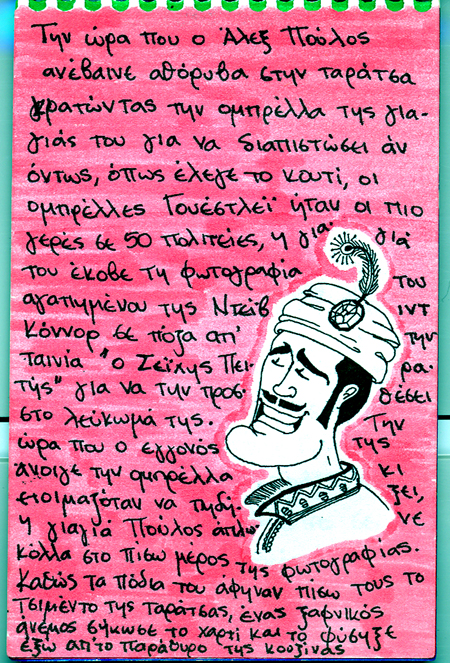 Την ώρα που ο Άλεξ Πούλος
ανέβαινε αθόρυβα στην ταράτσα
κρατώντας την ομπρέλλα της για-
γιάς του για να διαπιστώσει αν
όντως, όπως έλεγε το κουτί, οι
ομπρέλλες Γουέστλεϊ ήταν οι πιο
γερές σε 50 πολιτείες, η γιαγιά
του έκοβε τη φωτογραφία του
αγαπημένου της Ντέιβιντ
Κόννορ σε πόζα απ' την
ταινία "ο Σεΐχης Πειρα-
τής" για να την προσθέσει
στο λεύκωμά της. Την
ώρα που ο εγγονός της
άνοιγε την ομπρέλλα κι
ετοιμαζόταν να πηδήξει,
η γιαγιά Πούλος άπλωνε
κόλλα στο πίσω μέρος της φωτογραφίας.
Καθώς τα πόδια του άφηναν πίσω τους το
τσιμέντο της ταράτσας, ένας ξαφνικός
άνεμος σήκωσε το χαρτί και το φύσηξε
έξω απ'το παράθυρο της κουζίνας